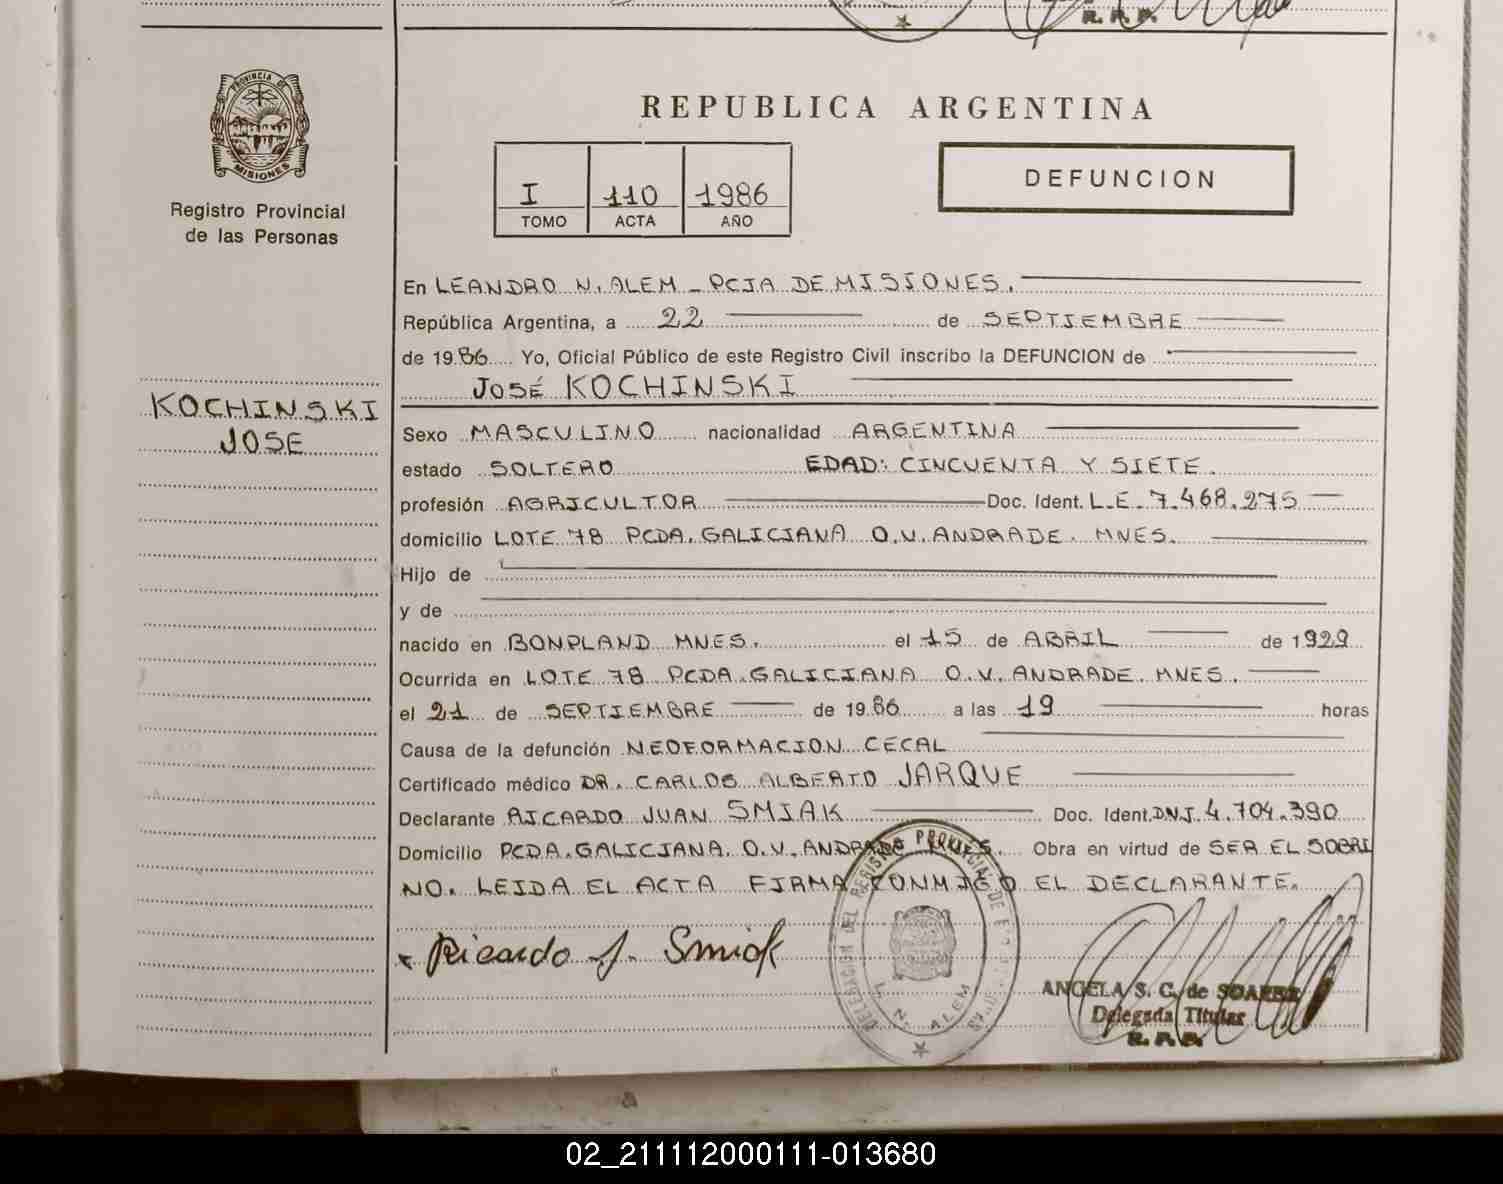 R. P. P.
PROVINCIA DE
MISIONES
Registro Provincial
de las Personas
REPUBLICA ARGENTINA
I 110 1986
TOMO ACTA AÑO
DEFUNCION
En LEANDRO N. ALEM - PCIA DE MISIONES.
República Argentina, a 22 de SEPTIEMBRE
de 1986 Yo, Oficial Público de este Registro Civil inscribo la DEFUNCION de
JOSÉ KOCHINSKI
KOCHINSKI
JOSE
Sexo MASCULINO nacionalidad ARGENTINA
estado SOLTERO EDAD: CINCUENTA Y SIETE.
profesión AGRICULTOR Doc. Ident. L.E. 7.468.275
domicilio LOTE 78 PCDA. GALICIANA O.V. ANDRADE. MNES.
Hijo de
y de
nacido en BONPLAND MNES. el 15 de ABRIL de 1929
Ocurrida en LOTE 78 PCDA. GALICIANA O.V. ANDRADE. MNES.
el 21 de SEPTIEMBRE de 1986 a las 19 horas
Causa de la defunción NEOFORMACION CECAL
Certificado médico DR. CARLOS ALBERTO JARQUE
Declarante RICARDO JUAN SMIAK Doc. Ident. DNI 4.704.390
Domicilio PCDA. GALICIANA. O.V. ANDRADE MNES. Obra en virtud de SER EL SOBRI
NO. LEIDA EL ACTA FIRMA CONMIGO EL DECLARANTE.
Ricardo J. Smiak
DELEGACION DEL REGISTRO PROVINCIAL DE
L. N. ALEM
ANGELA S. C. de SOAREZ
Delegada Titular
R. P. P.
02_211112000111-013680